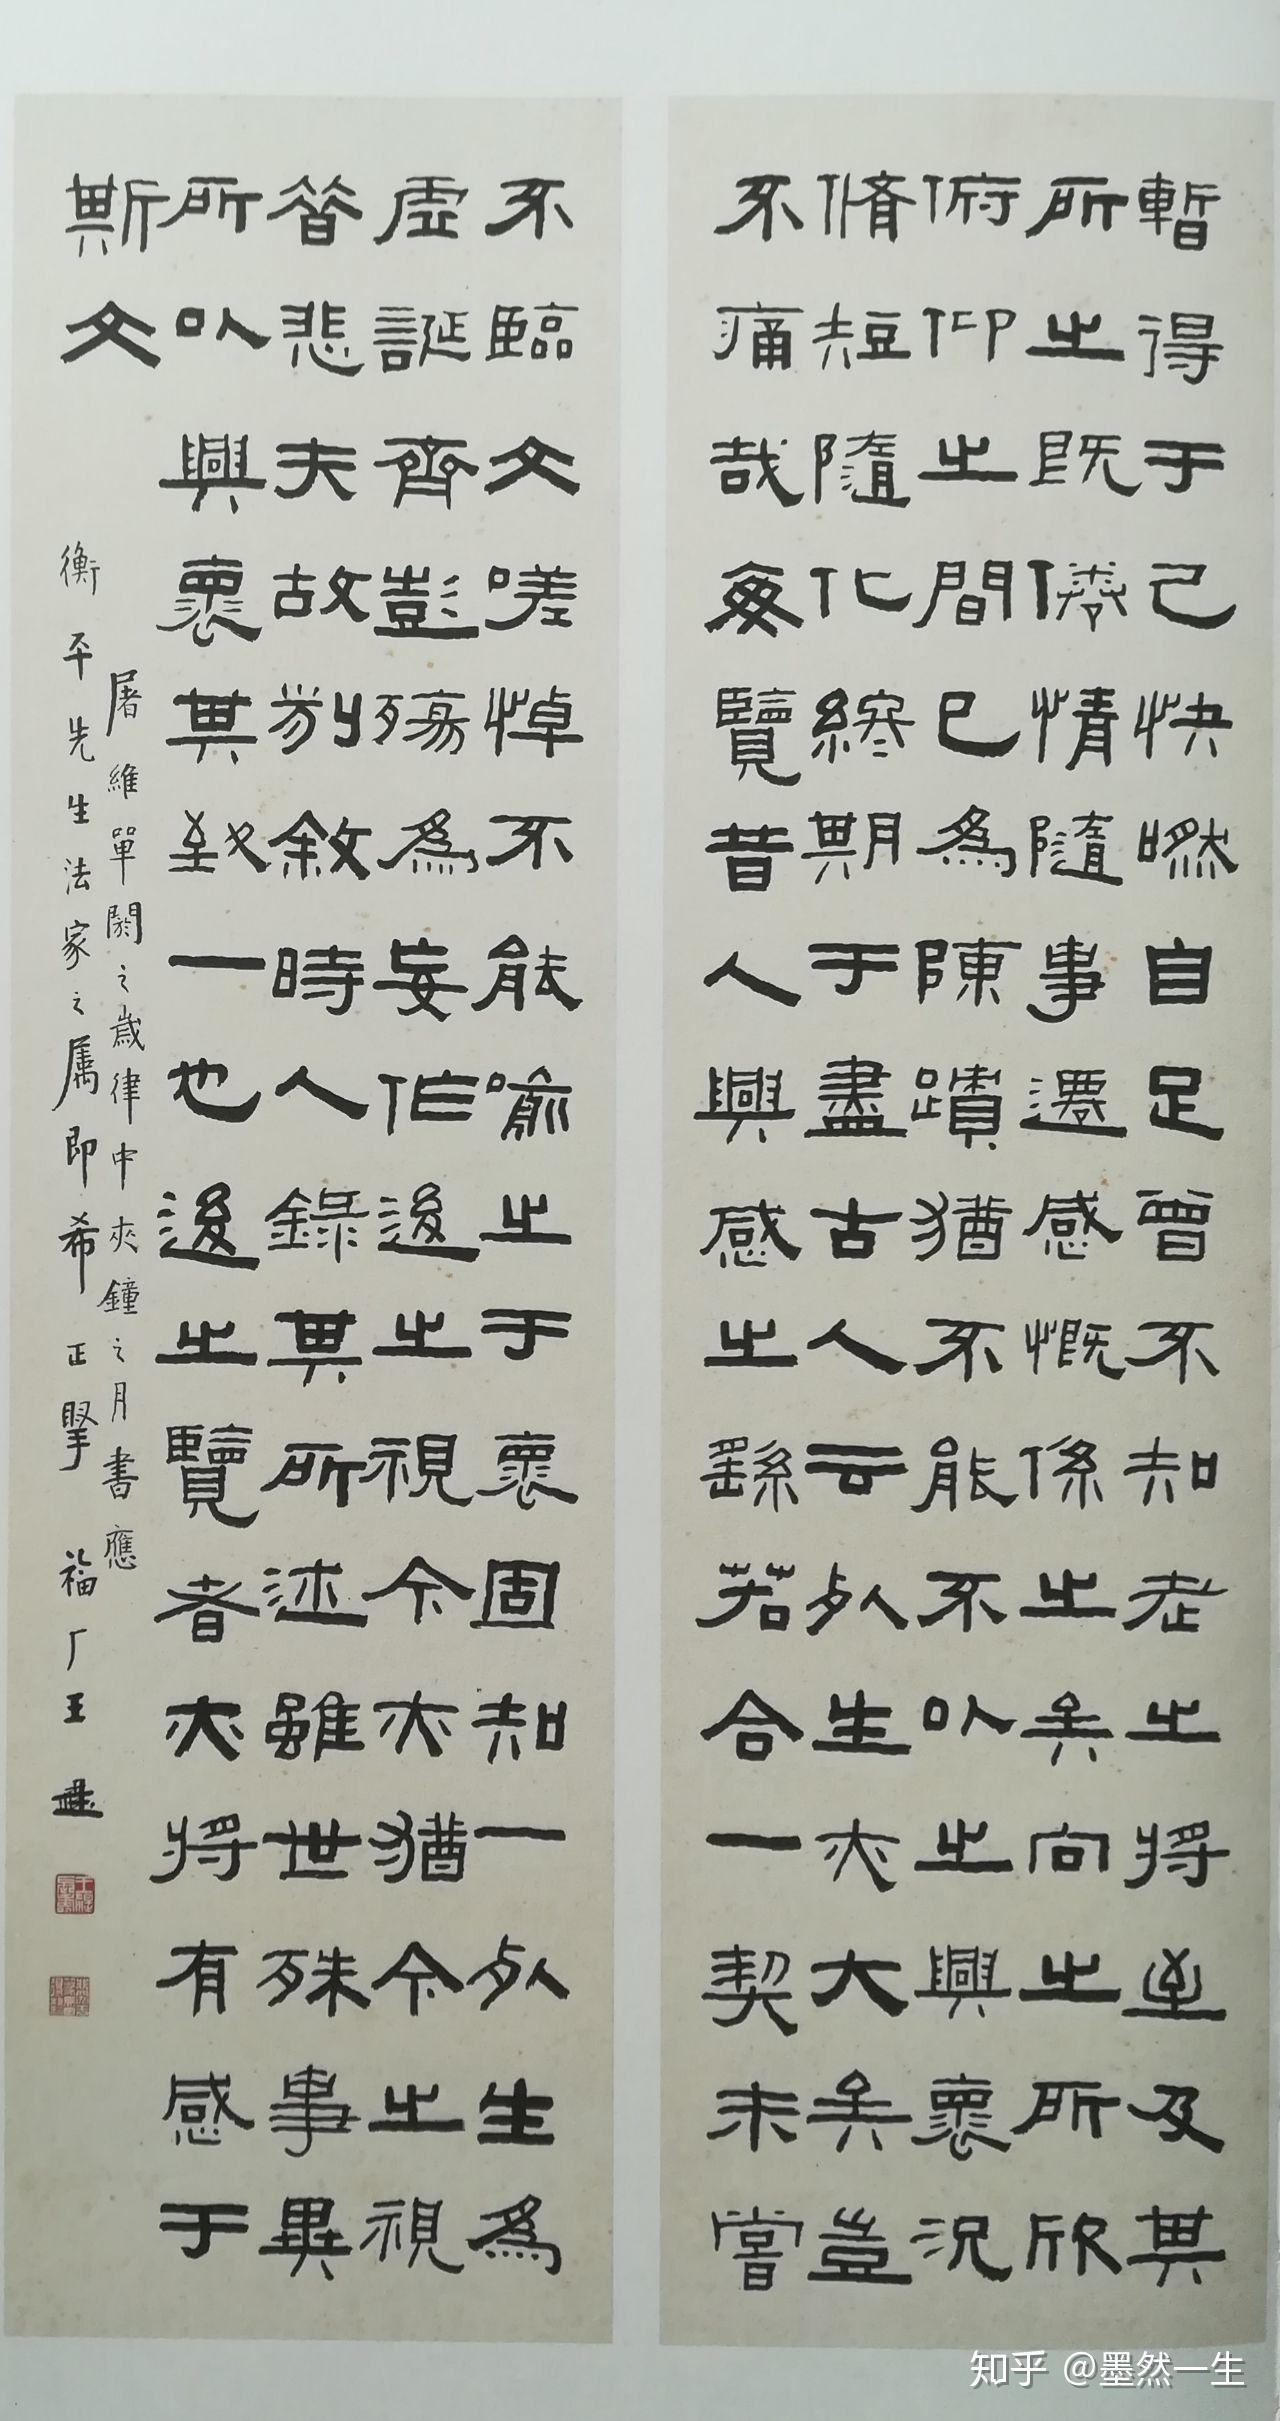 暫得于己快嘫自足曾不知老之將至及其
所之既倦情隨事遷感慨係之矣向之所欣
俯仰之間已為陳蹟猶不能不以之興懷況
脩短隨化終期于盡古人云死生亦大矣豈
不痛哉每覽昔人興感之繇若合一契未嘗
不臨文嗟悼不能喻之于懷固知一死生為
虛誕齊彭殤為妄作後之視今亦猶今之視
昔悲夫故列敘時人錄其所述雖世殊事異
所以興懷其致一也後之覽者亦將有感于
斯文
屠維單閼之歲律中夾鐘之月書應
衡平先生法家之屬即希正掔 福厂王禔
知乎 @墨然一生